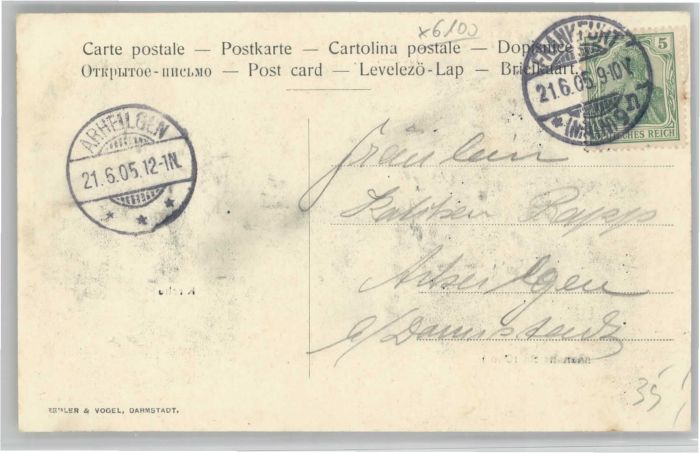 x6100
Carte postale — Postkarte — Cartolina postale — Dopisnice
Открытое-письмо — Post card — Levelező-Lap — Briefkaart.
FRANKFURT
21.6.05.9-10V.
(MAIN)
5
DEUTSCHES REICH
ARHEILGEN
21.6.05.12-1N.
Fräulein
Kätchen Rapp
Arheilgen
b/Darmstadt
35
& VOGEL, DARMSTADT.